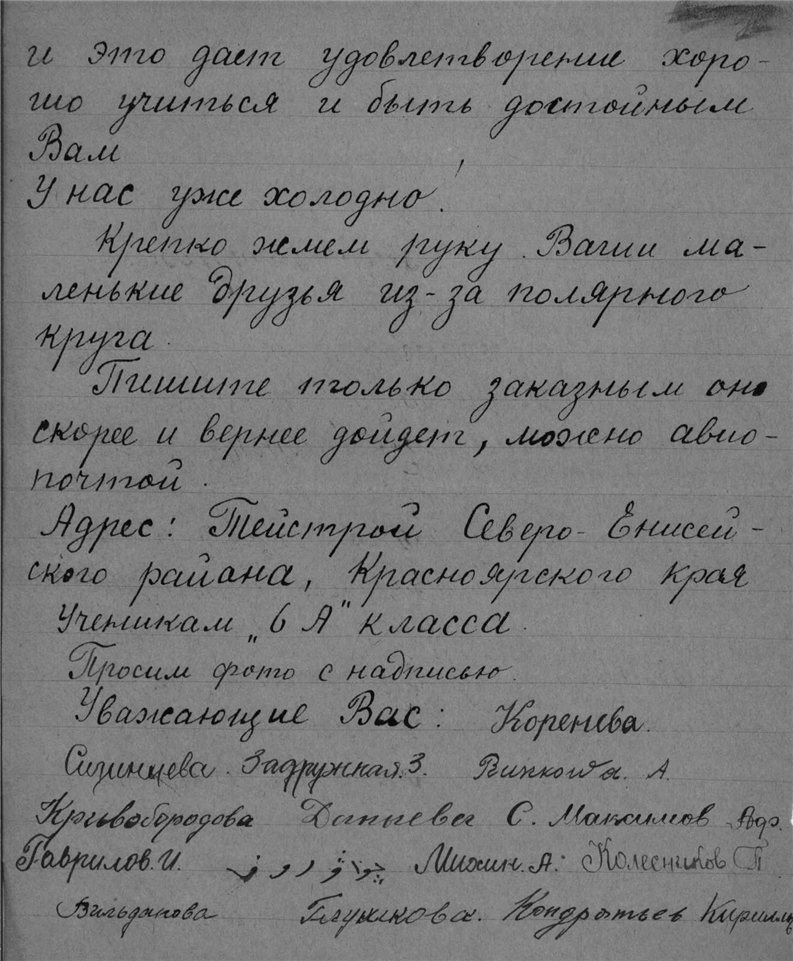 и это дает удовлетворение хоро-
шо учиться и быть достойным
Вам
У нас уже холодно!
Крепко жмем руку. Ваши ма-
ленькие друзья из-за полярного
круга.
Пишите только заказным оно
скорее и вернее дойдет, можно авио-
почтой.
Адрес: Тейстрой Северо-Енисей-
ского района, Красноярского края
Ученикам „6 А" класса.
Просим фото с надписью.
Уважающие Вас: Коренева.
Сизинцева. Задружная.З. А.
Кривобородова Данаева С. Максимов
Гаврилов.И. Михин.А. Колесников П
Вильданова Глушкова. Кондратьев Кирилл